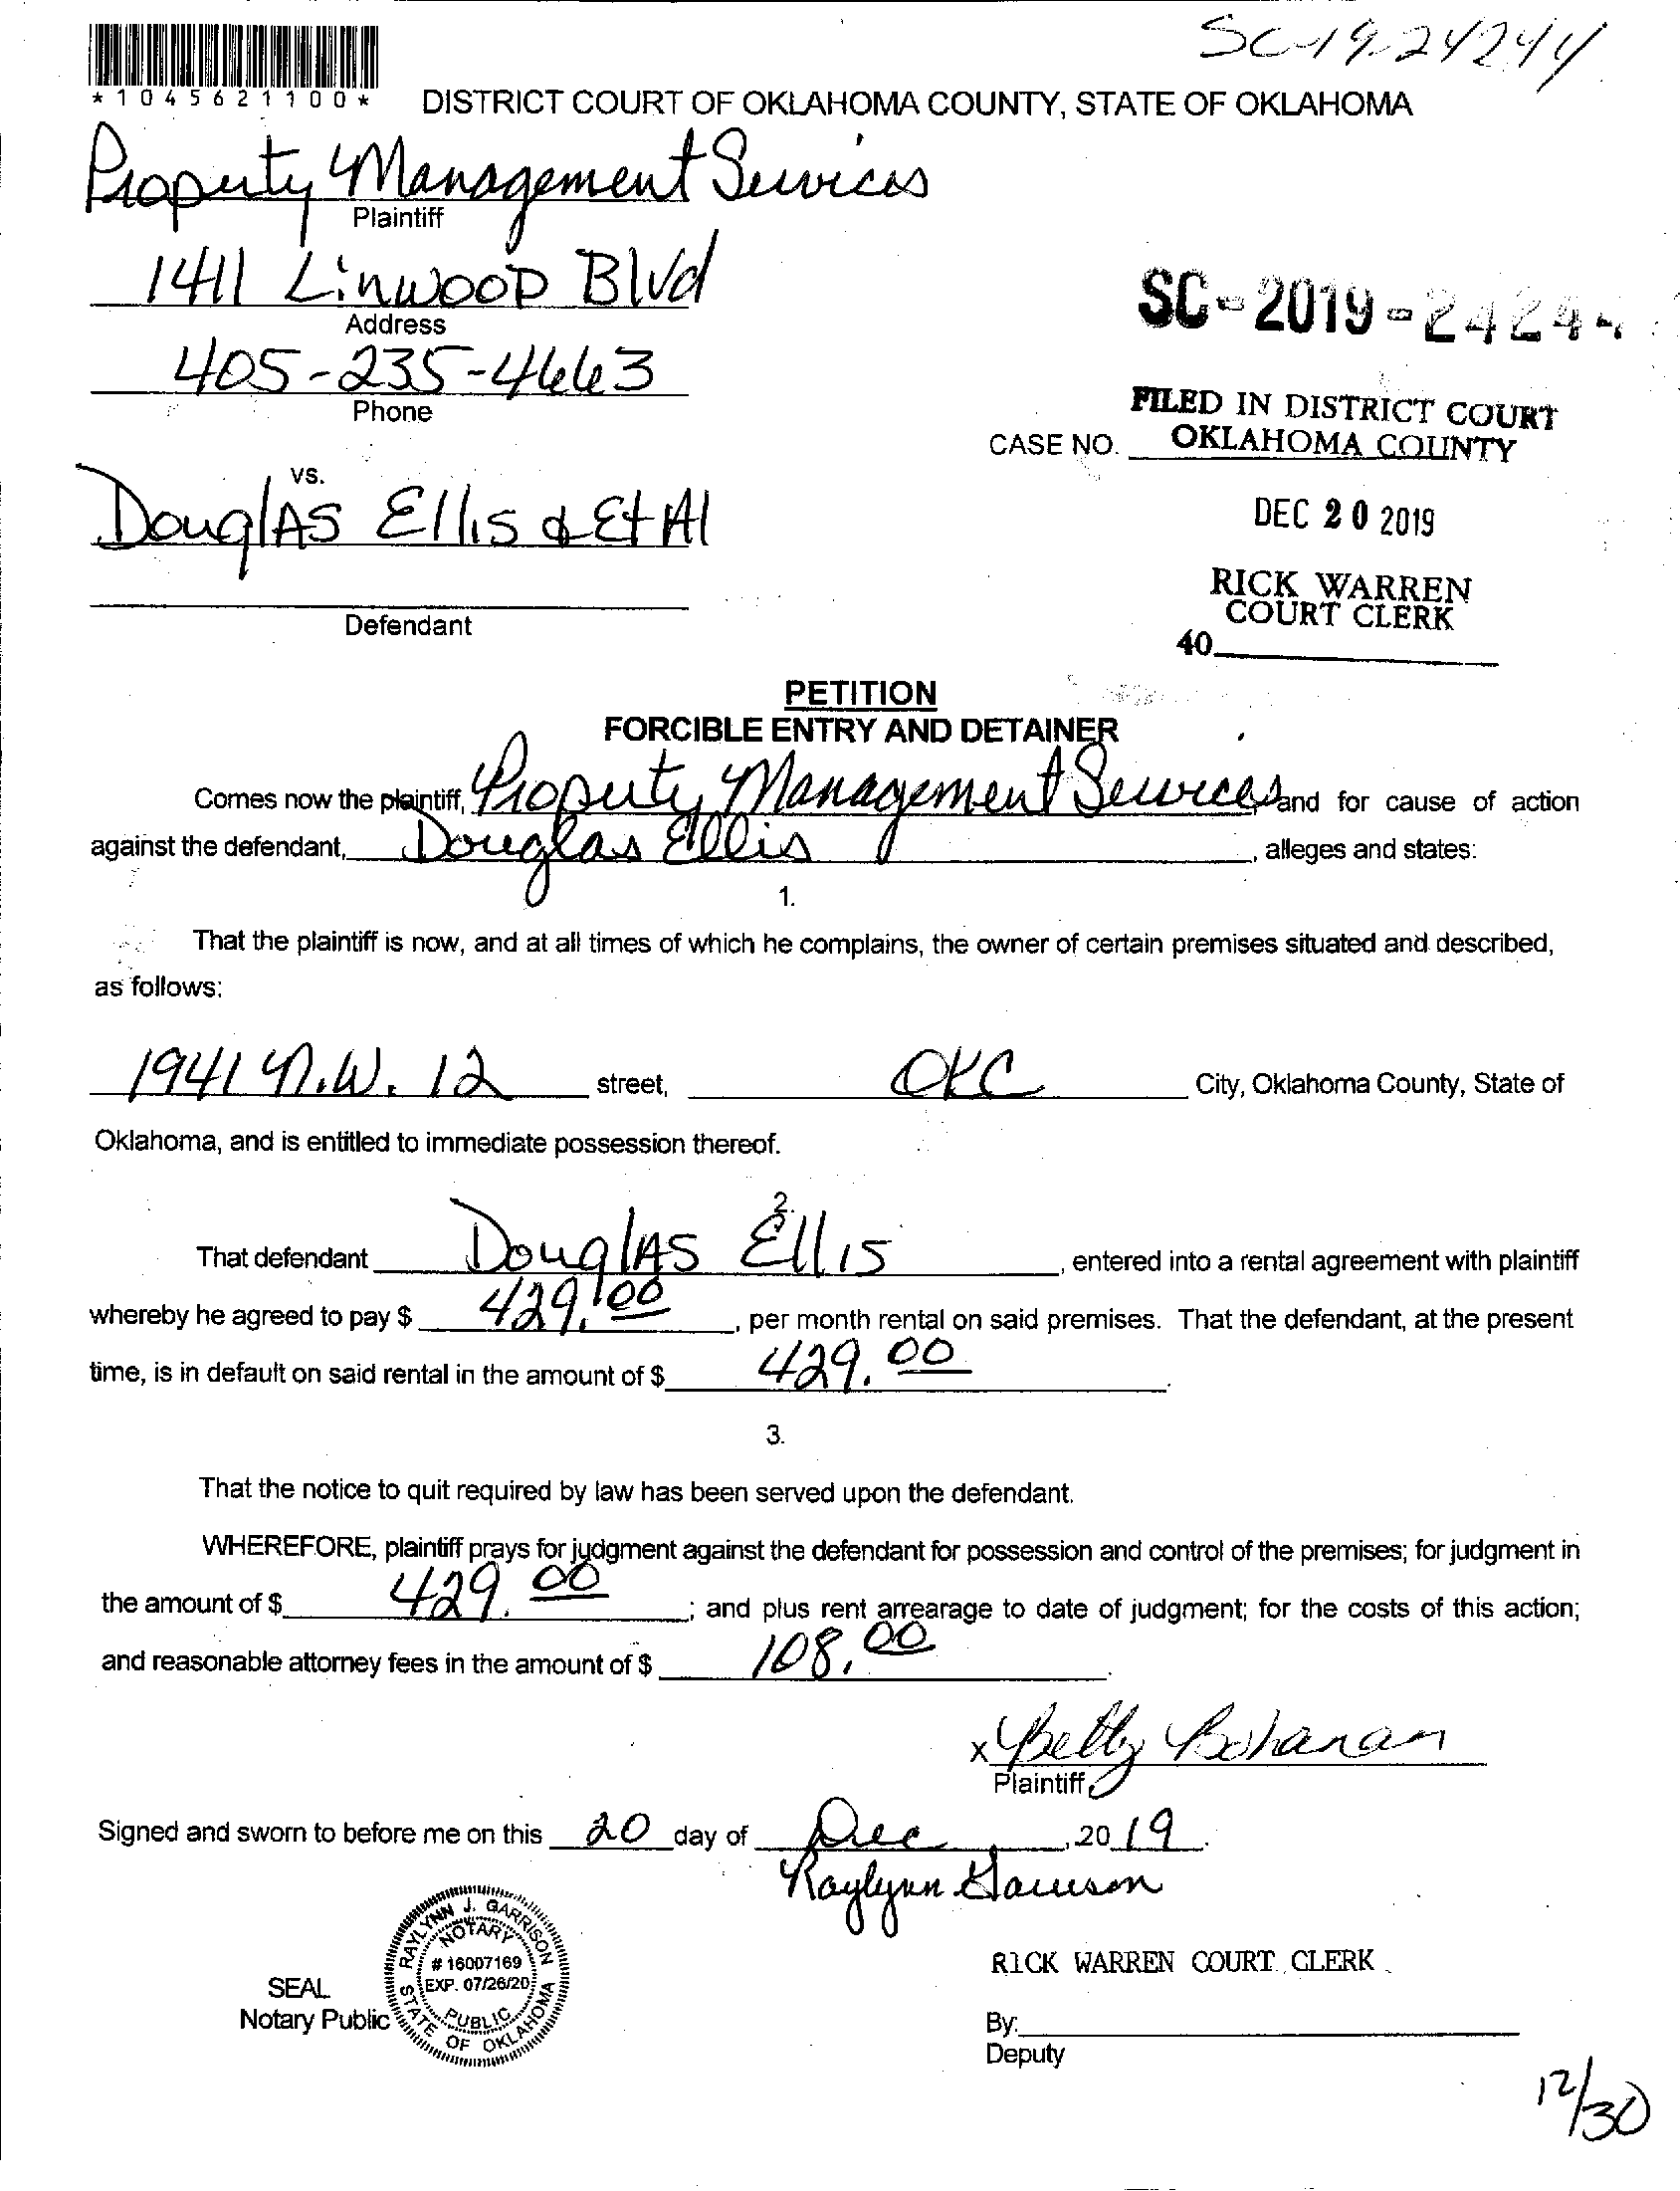 SC-19-24244
*1045621100*
DISTRICT COURT OF OKLAHOMA COUNTY, STATE OF OKLAHOMA
Property Management Services
Plaintiff
1411 Linwood Blvd
Address
405-235-4663
Phone
SC-2019-24244
FILED IN DISTRICT COURT
CASE NO. OKLAHOMA COUNTY
DEC 20 2019
RICK WARREN
COURT CLERK
40
vs.
Douglas Ellis & Et Al
Defendant
PETITION
FORCIBLE ENTRY AND DETAINER
Comes now the plaintiff, Property Management Services and for cause of action
against the defendant, Douglas Ellis, alleges and states:
1.
That the plaintiff is now, and at all times of which he complains, the owner of certain premises situated and described,
as follows:
1941 N.W. 12 street, OKC City, Oklahoma County, State of
Oklahoma, and is entitled to immediate possession thereof.
2.
That defendant Douglas Ellis, entered into a rental agreement with plaintiff
whereby he agreed to pay $ 429.00, per month rental on said premises. That the defendant, at the present
time, is in default on said rental in the amount of $ 429.00.
3.
That the notice to quit required by law has been served upon the defendant.
WHEREFORE, plaintiff prays for judgment against the defendant for possession and control of the premises; for judgment in
the amount of $ 429.00; and plus rent arrearage to date of judgment; for the costs of this action;
and reasonable attorney fees in the amount of $ 108.00.
x Betty Bohanan
Plaintiff
Signed and sworn to before me on this 20 day of Dec, 20 19.
Raylynn Garrison
RAYLYNN J. GARRISON
NOTARY
# 16007169
EXP. 07/26/20
PUBLIC
STATE OF OKLAHOMA
SEAL
Notary Public
RICK WARREN COURT CLERK
By:
Deputy
12/30